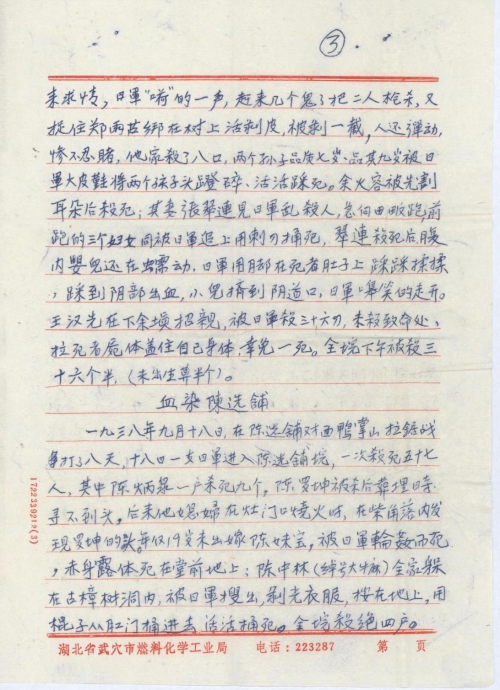 ③
来求情，日軍“嗬”的一声，赶来几个鬼子把二人枪杀，又
捉住郑两苟绑在树上活剥皮，被剥一截，人还弹动，
惨不忍睹，他家殺了八口，两个孙子品质七岁、品其九岁被日
軍大皮鞋将两个孩子头蹬碎、活活踩死。余火容被先割
耳朵后殺死；其妻張翠連見日軍乱殺人，急向田畈跑，前
跑的三个妇女同被日軍追上用刺刀捅死，翠連殺死后腹
内嬰兒还在蠕动，日軍用脚在死者肚子上踩踩揉揉
，踩到阴部出血，小兒擠到阴道口，日軍嗥笑的走开。
王汉先在下余塆招親，被日軍殺三十六刀，未殺致命处、
拉死者屍体盖住自己身体，幸免一死。全塆下午被殺三
十六个半，（未出生算半个）。
血染陳选舖
一九三八年九月十八日，在陈选舖对面鸭掌山拉鋸战
争打了八天，十八日一支日軍进入陈选舖塆，一次殺死五十七
人，其中陈炳是一户杀死九个，陈罗坤被杀后葬埋时
寻不到头。后来他媳婦在灶门口烧火时，在柴角落内发
现罗坤的头。年仅19岁未出嫁陈妹宝，被日軍輪姦而死
，赤身露体死在堂前地上；陈中林（绰号大牛麻）全家躲
在古樟树洞内，被日軍搜出，剥光衣服，按在地上，用
棍子从肛门桶进去活活捅死。全塆殺絕四户。
172233921>(3)
湖北省武穴市燃料化学工业局 电话：223287 第 页